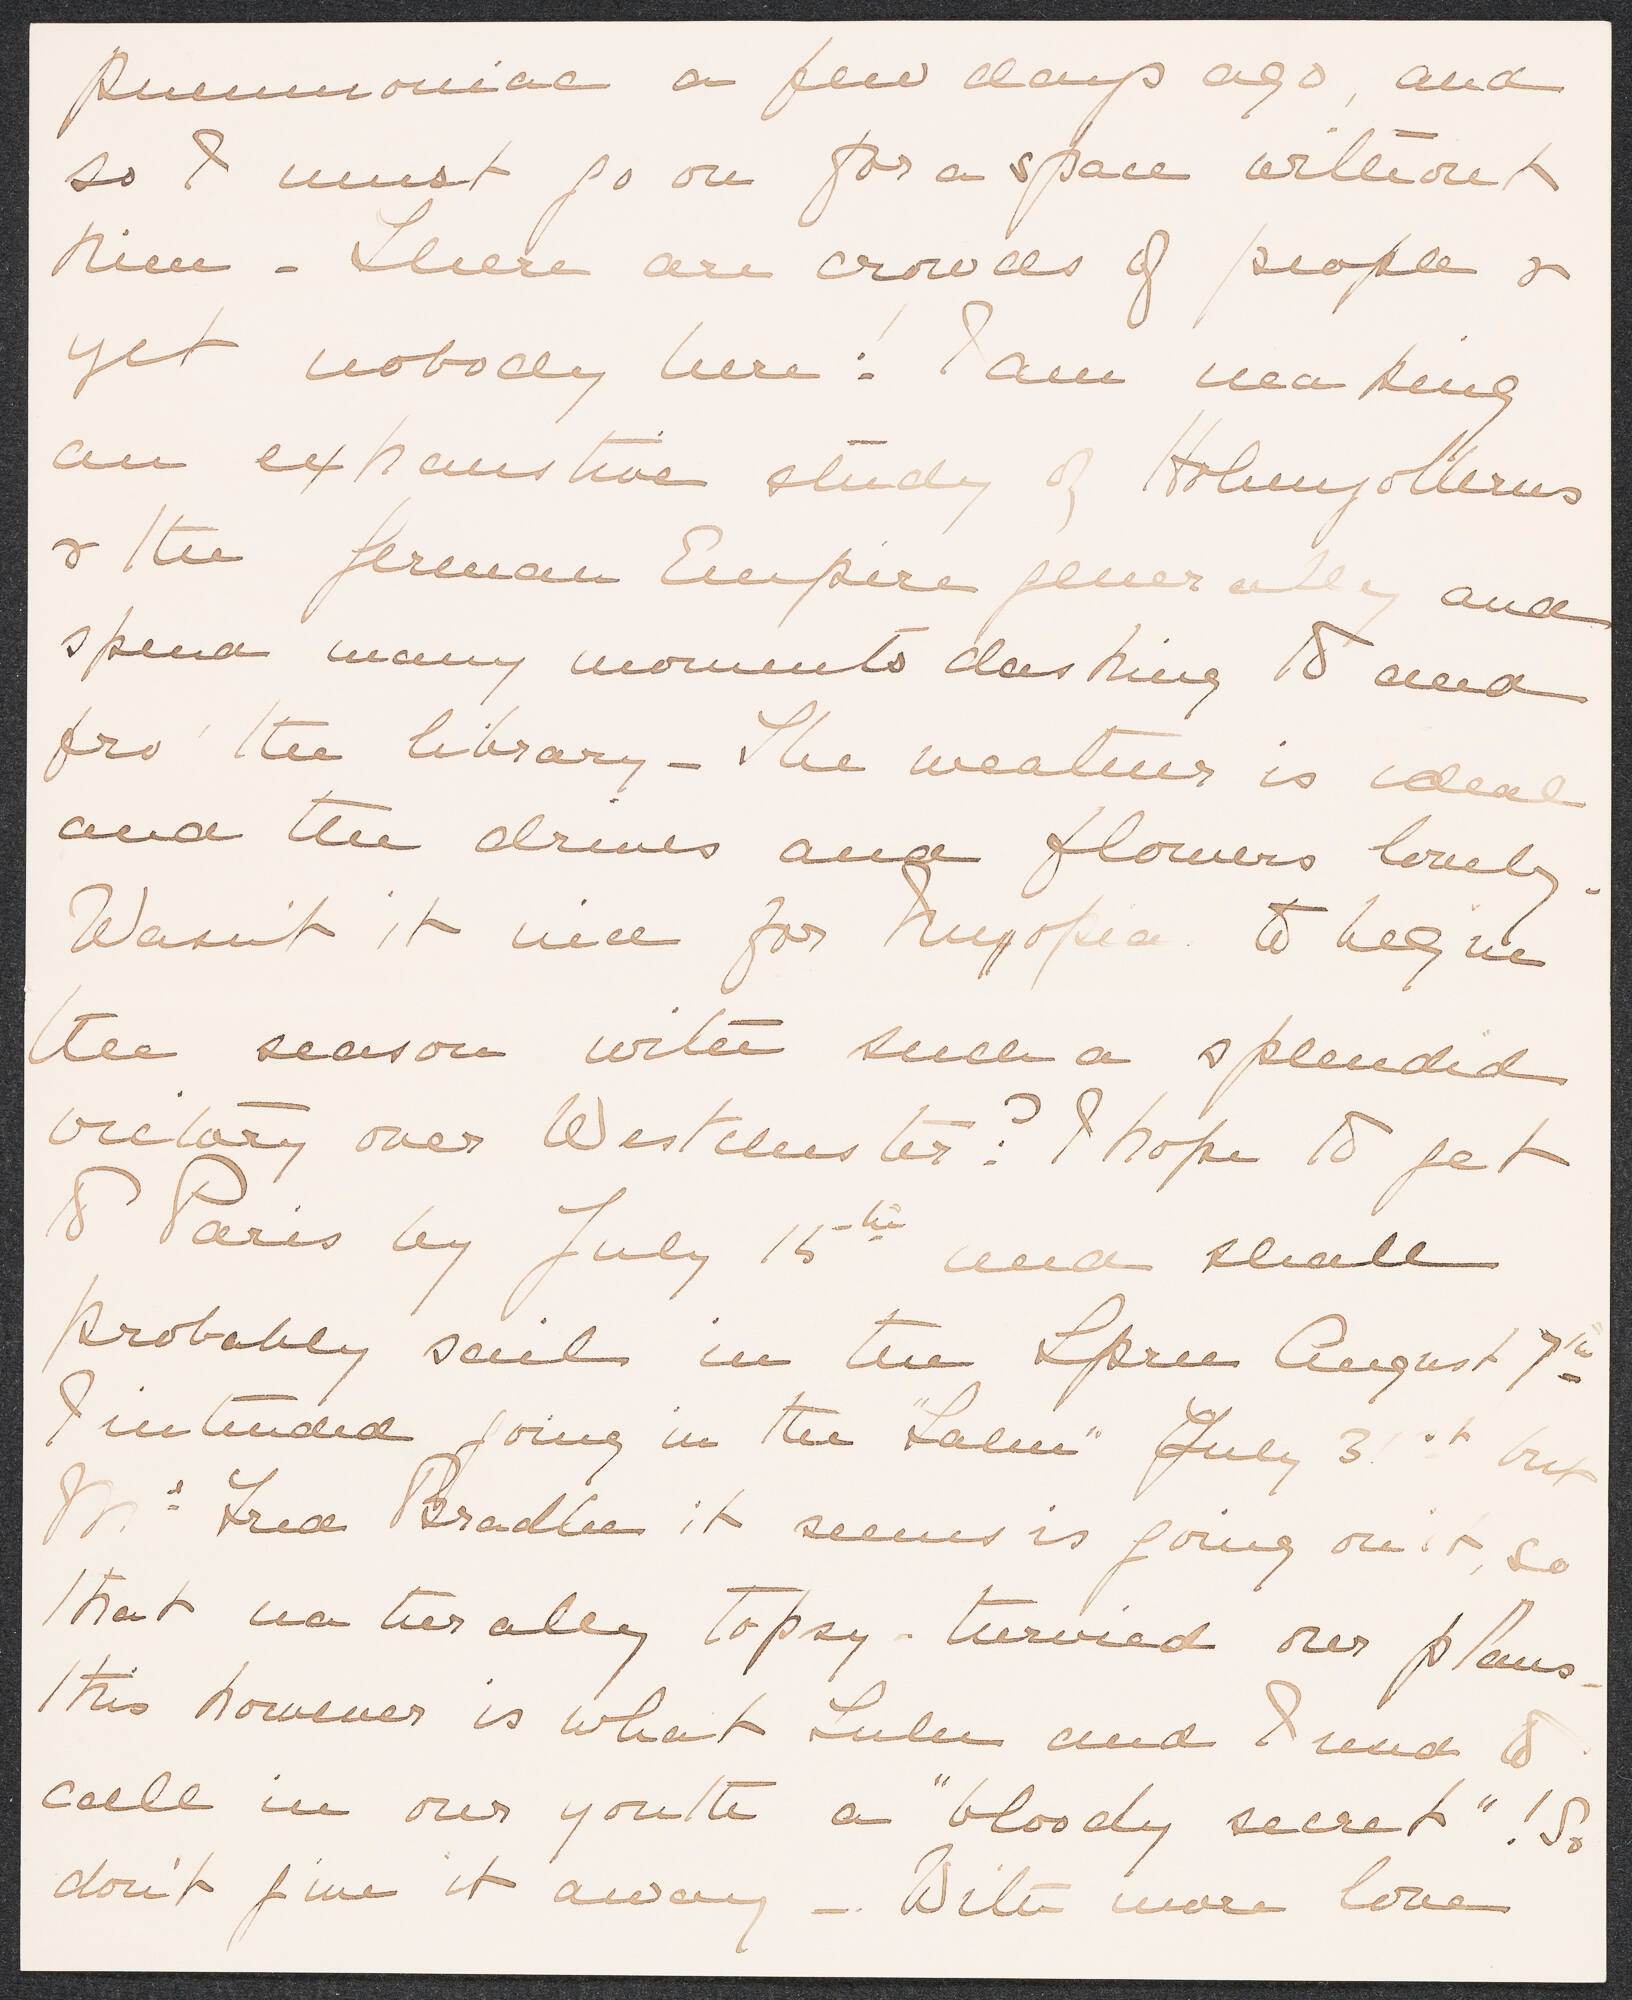 pneumoniae a few days ago, and
so I must go on for a space without
him - There are crowds of people &
yet nobody here! I am making
an exhaustive study of Hohenzollerns
& the German Empire generally and
spend many moments dashing to and
fro the library - The weather is ideal
and the drives and flowers lovely -
Wasn't it nice for Myopia to begin
the season with such a splendid
victory over Westchester? I hope to get
to Paris by July 15th and shall
probably sail in the Spree August 7th
I intended going in the "Lahn" July 31st but
Mrs Fred Bradlee it seems is going on it, so
that naturally topsy-turvied our plans -
this however is what Lulu and I used to
call in our youth a "bloody secret"! So
don't give it away - With more love